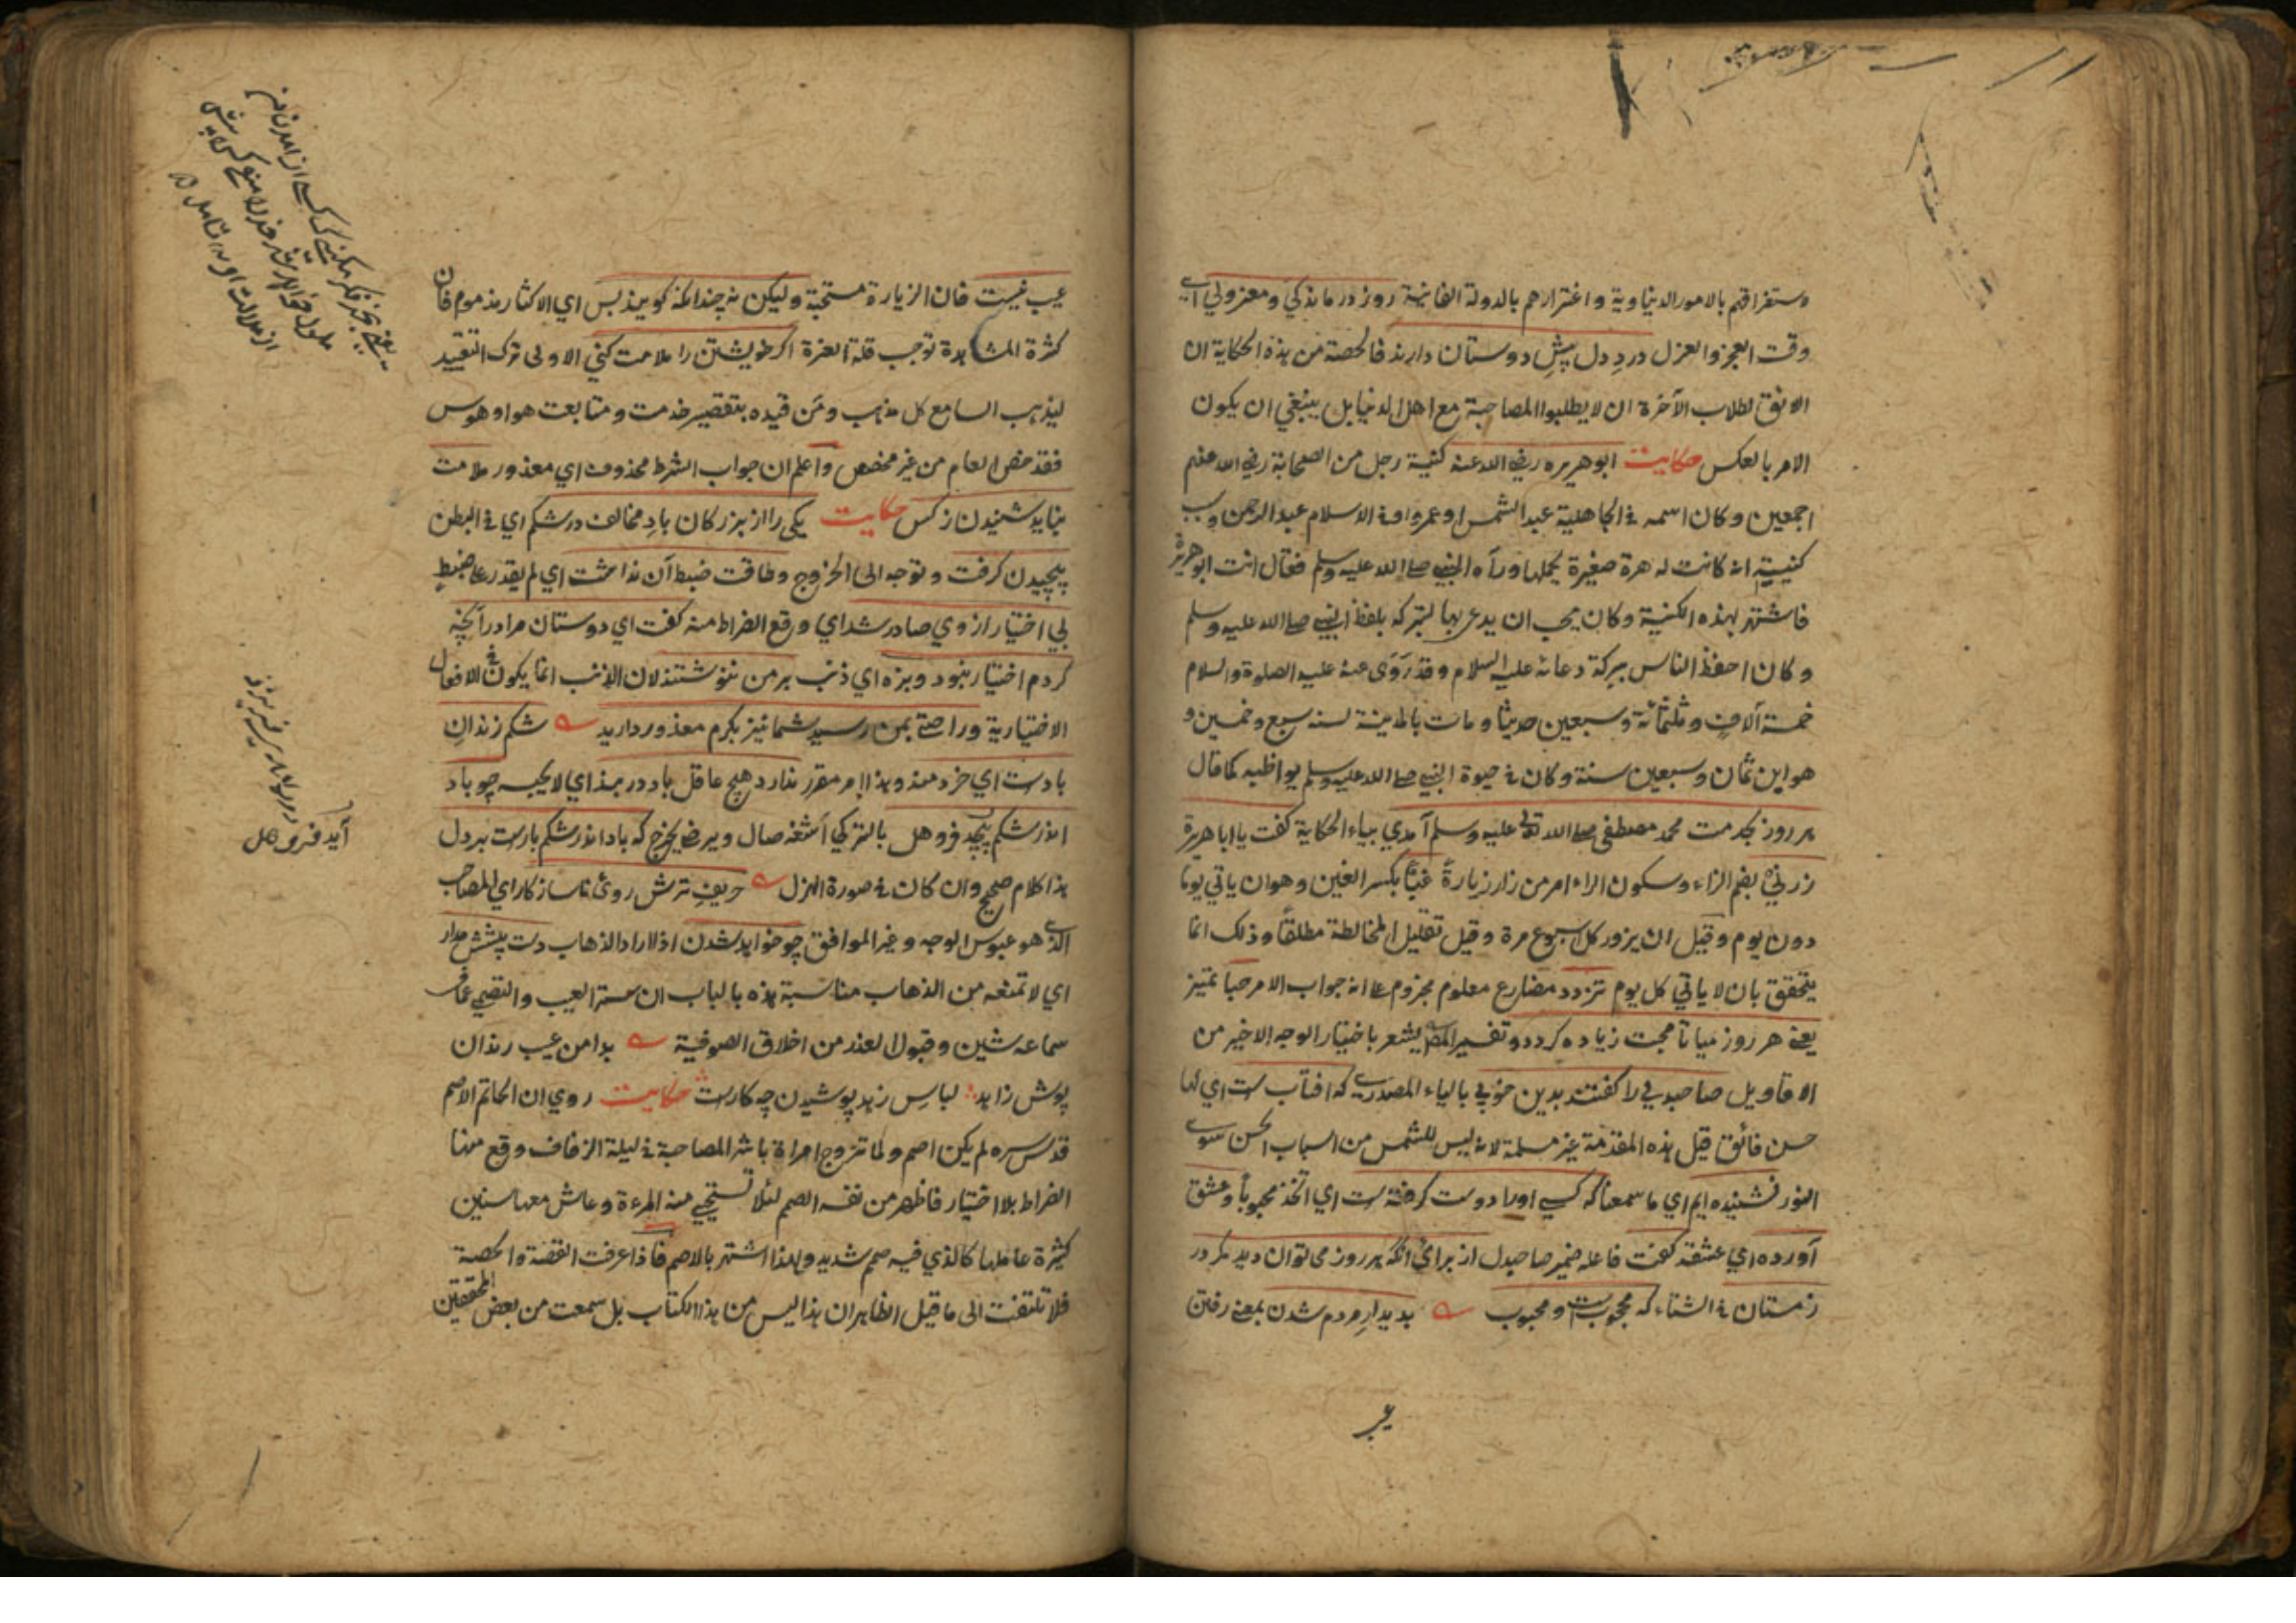 وستغراقهم بالامور الدنياوية واغترارهم بالدولة الفانية روز درماندكي ومعزولي اي
وقت العجز والعزل دردِ دل پیشِ دوستان دارند فالحصة من هذه الحكاية ان
الاليق لطلاب الآخرة ان لا يطلبوا المصاحبة مع اهل الدنيا بل ينبغي ان يكون
الامر بالعكس حكايت ابو هريره رضي الله عنه كنية رجل من الصحابة رضي الله عنهم
اجمعين وكان اسمه في الجاهلية عبد الشمس او عمرو وفي الاسلام عبد الرحمن وسبب
كنيته انه كانت له هرة صغيرة يحملها ورآه النبي صلى الله عليه وسلم فقال انت ابو هريرة
فاشتهر بهذه الكنية وكان يحب ان يدعى بها لتبركه بلفظ النبي صلى الله عليه وسلم
وكان احفظ الناس ببركة دعائه عليه السلام وقد رَوَى عنه عليه الصلوة والسلام
خمسة آلاف وثلثمائة وسبعين حديثا ومات بالمدينة لسنة سبع وخمسين و
هو ابن ثمان وسبعين سنة وكان في حيوة النبي صلى الله عليه وسلم يواظبه كما قال
هر روز بخدمت محمد مصطفى صلى الله تعالى عليه وسلم آمدي بياء الحكاية كفت يا ابا هريرة
زرني بضم الزاء وسكون الراء امر من زار زيارةً غبًّا بكسر الغين وهو ان ياتي يوما
دون يوم وقيل ان يزور كل اسبوع مرة وقيل تقليل المخالطة مطلقًا وذلك انما
يتحقق بان لا ياتي كل يوم تزدد مضارع معلوم مجزوم على انه جواب الامر حبا تميز
يعني هر روز ميا تا محبت زياده كردد وتفسير المص يشعر باختيار الوجه الاخير من
الاقاويل صاحبدلي را كفتند بدين خوبي بالياء المصدرية كه افتاب ست اي لها
حسن فائق قيل هذه المقدمة غير مسلمة لانه ليس للشمس من اسباب الحسن سوى
النور نشنيده ايم اي ما سمعنا كه كسي اورا دوست كرفته ست اي اتخذ محبوبًا وعشق
آورده اي عشقه كفت فاعله ضمير صاحبدل از براي انكه هر روز مي توان ديد مكر در
زمستان في الشتاء كه محجوبست و محبوب بديدارِ مردم شدن بمعنى رفتن
عيب
عيب نيست فان الزيارة مستحبة وليكن نه چندانكه كويند بس اي الاكثار مذموم فان
كثرة المشاهدة توجب قلة العزة اكر خويشتن را ملامت كني الاولى ترك التقييد
ليذهب السامع كل مذهب ومَن قيده بتقصير خدمت و متابعت هوا و هوس
فقد خص العام من غير مخصص واعلم ان جواب الشرط محذوف اي معذور ملامت
نبايد شنيدن ز كس حكايت يكي را از بزركان بادِ مخالف در شكم اي في البطن
پيچيدن كرفت وتوجه الى الخروج وطاقت ضبط آن نداشت اي لم يقدر على ضبطه
بي اختيار از وي صادر شد اي وقع الضراط منه كفت اي دوستان مرا در آنچه
كردم اختيار نبود وبزه اي ذنب بر من ننوشتند لان الذنب انما يكون في الافعال
الاختيارية وراحتي بمن رسيد شما نيز بكرم معذور داريد شكم زندانِ
بادست اي خردمند وهذا امر مقرر ندارد هيچ عاقل باد در بند اي لا يحبسه چو باد
اندر شكم پيچد فرو هل بالتركي اشغه صال ويرضي يخرج كه باد اندر شكم بارست بر دل
هذا كلام صحيح وان كان في صورة الهزل حريفِ ترش روئ ناسازكار اي المصاحب
الذي هو عبوس الوجه وغير الموافق چو خواهد شدن اذا اراد الذهاب دست پيشش مدار
اي لا تمنعه من الذهاب مناسبة هذه بالباب ان ستر العيب والتصمم عما في
سماعه شين وقبول العذر من اخلاق الصوفية بدامن عيب رندان
پوش زاهد لباسِ زهد پوشيدن چه كارست حكايت روي ان الحاتم الاصم
قدس سره لم يكن اصم ولما تزوج امراة باشر المصاحبة في ليلة الزفاف وقع منها
الضراط بلا اختيار فاظهر من نفسه الصمم لئلا تستحيي منه المرءة وعاش معها سنين
كثيرة عاملها كالذي فيه صمم شديد ولهذا اشتهر بالاصم فاذا عرفت القصة والحصة
فلا تلتفت الى ما قيل الظاهر ان هذا ليس من هذا الكتاب بل سمعت من بعض المحققين
آيد فرو هل